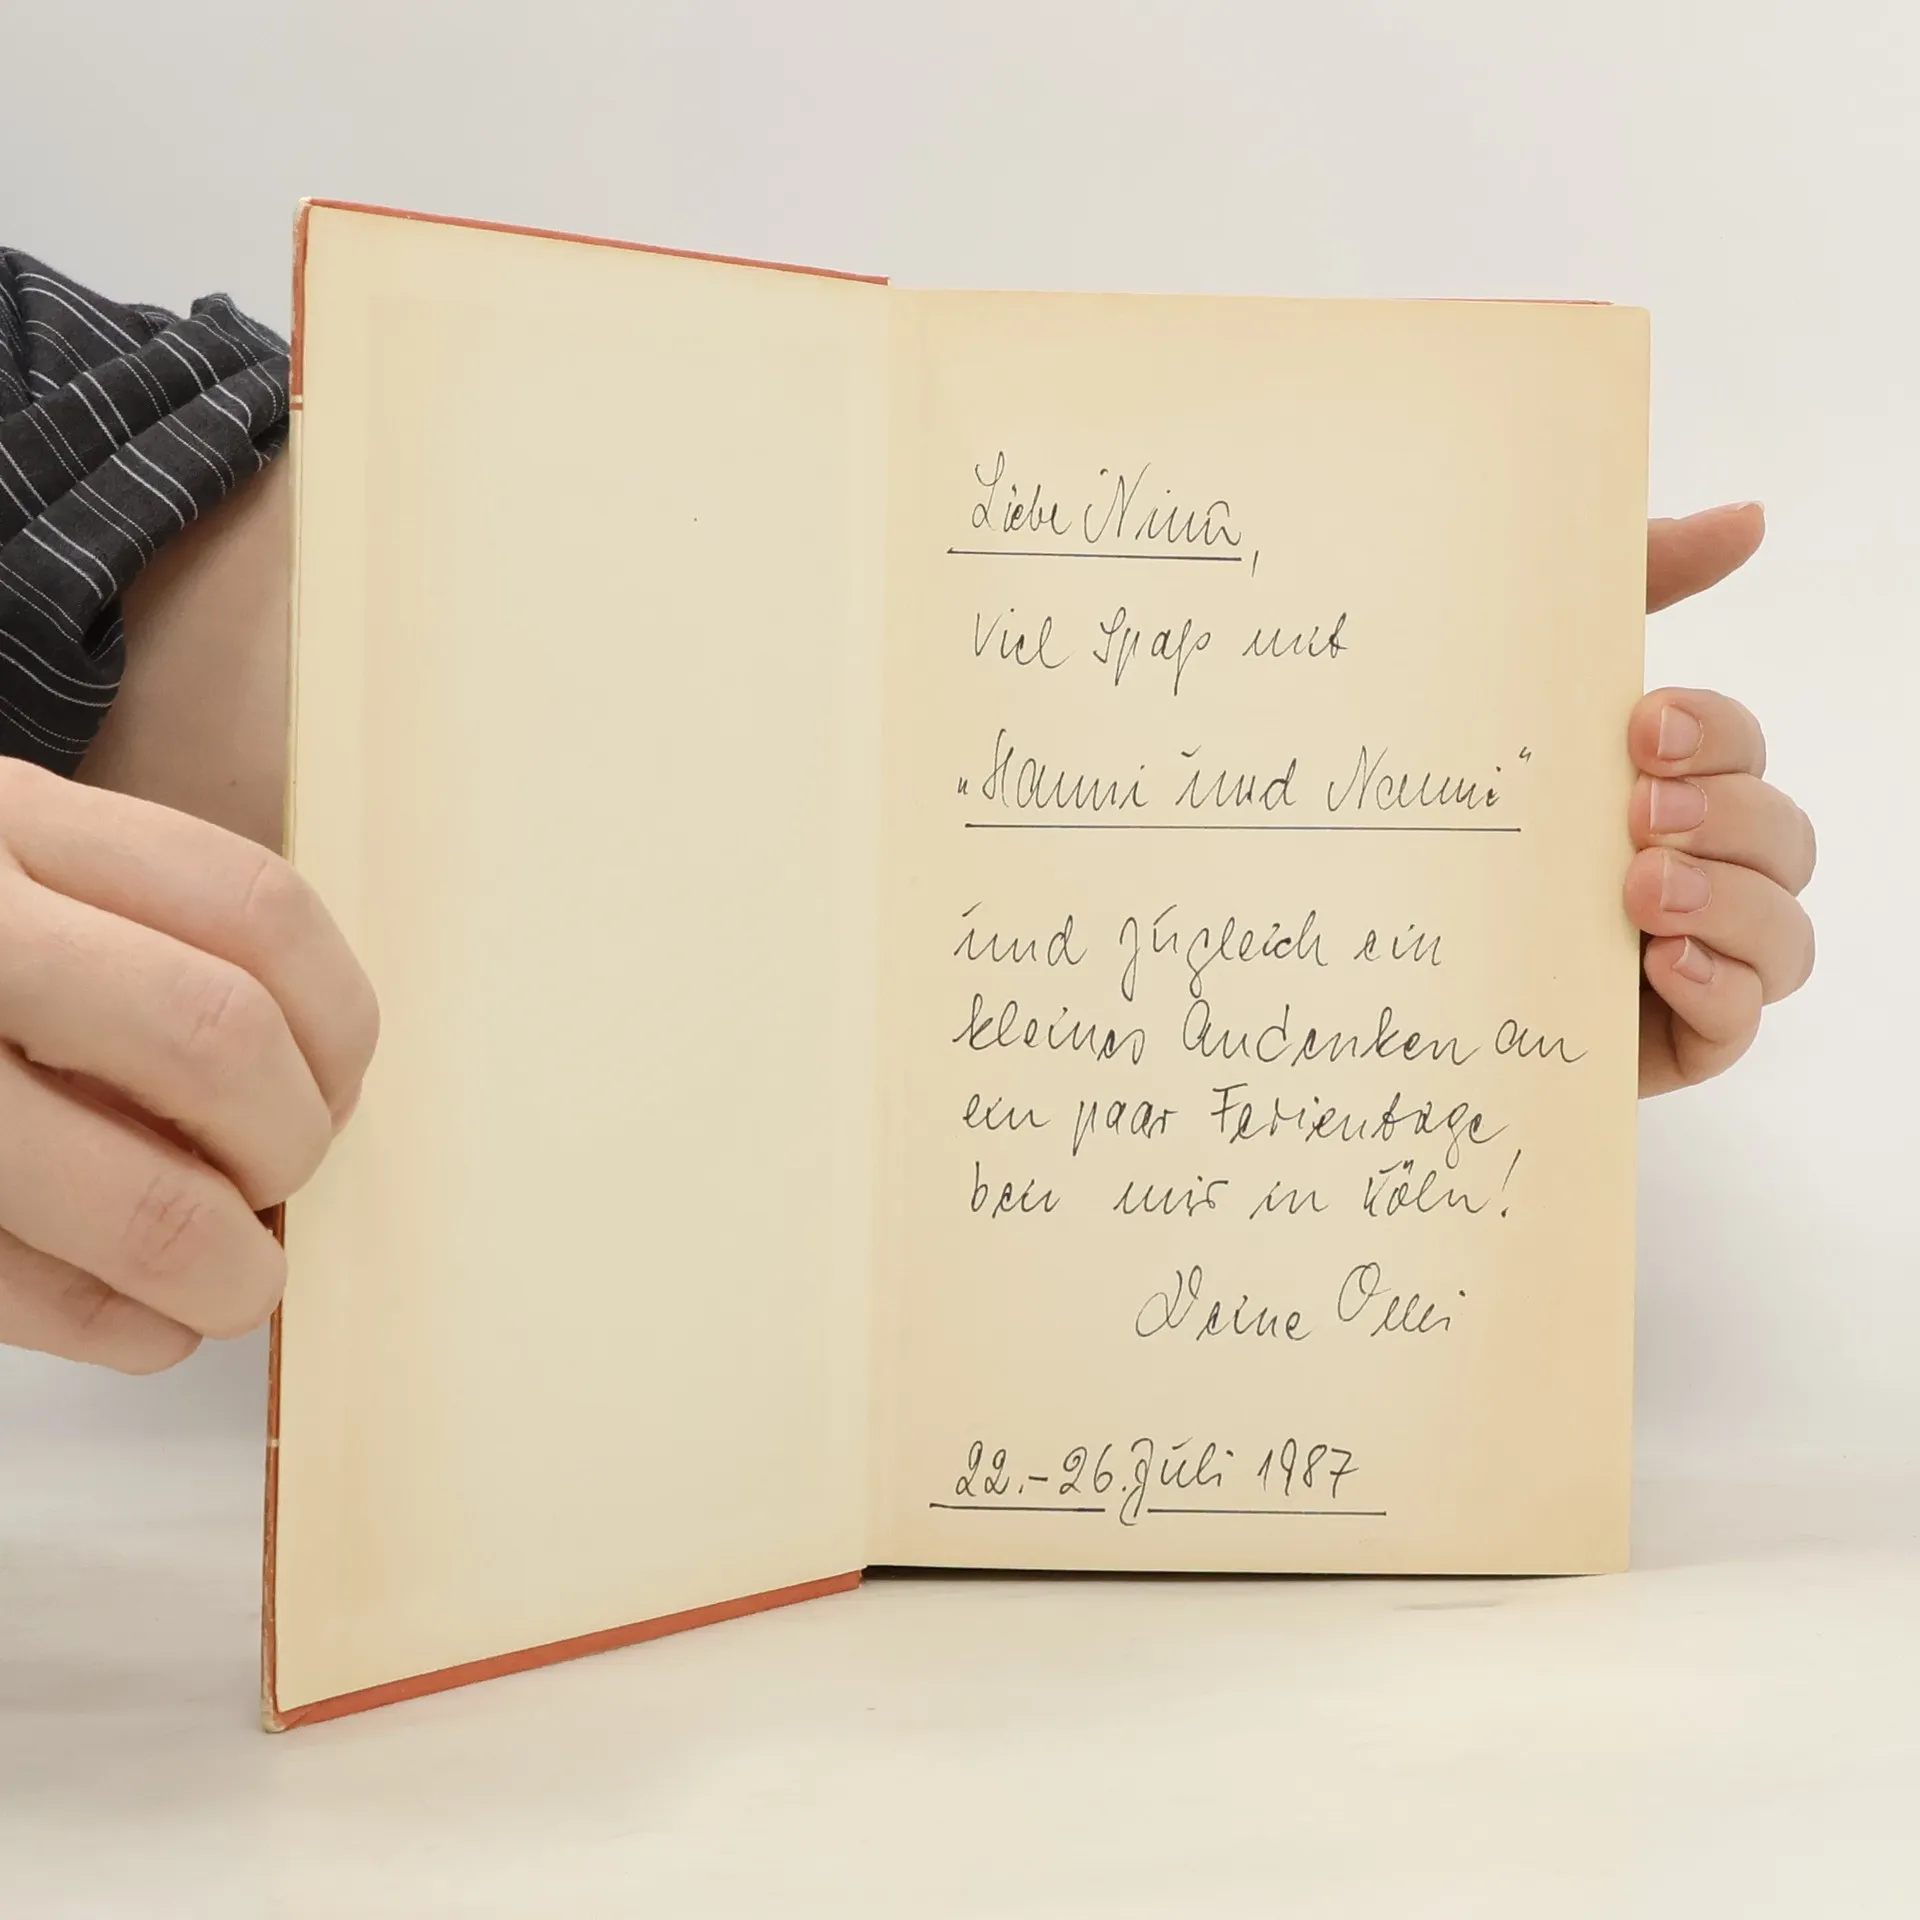 Liebe Nina,
viel Spaß mit
„Hanni und Nanni“
und zugleich ein
kleines Andenken an
ein paar Ferientage
bei mir in Köln!
Deine Olli
22.-26. Juli 1987